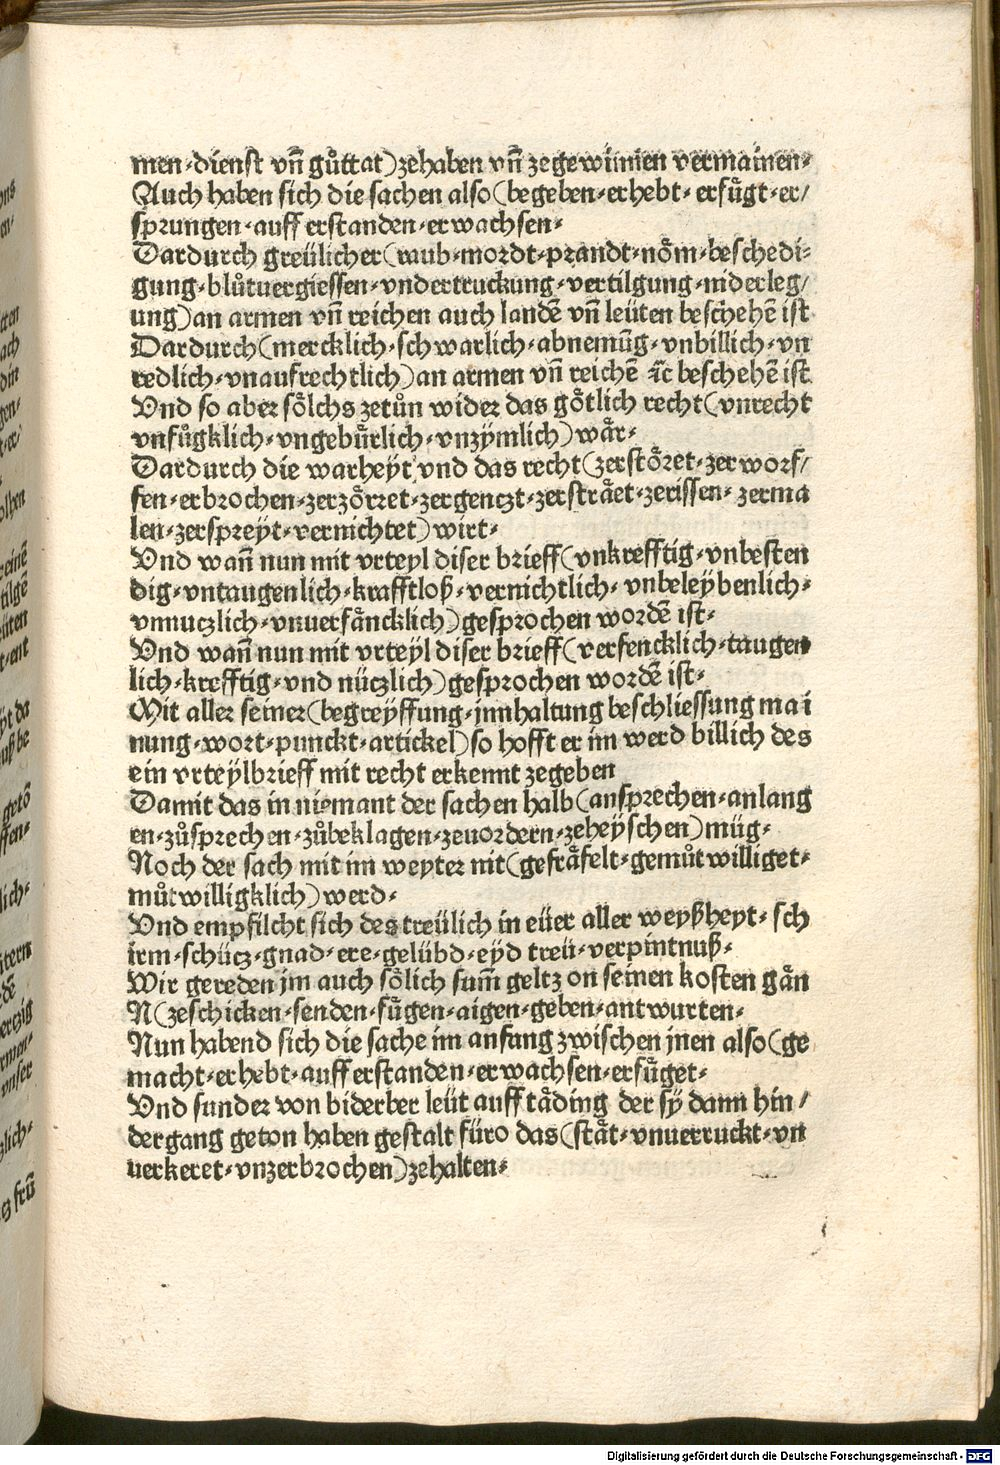 men·dienst vn̄ gůttat) zehaben vn̄ zegewinnen vermainen·
Auch haben sich die sachen also (begeben·erhebt·erfuͤgt·er/
sprungen·auff erstanden·erwachsen·
Dardurch greülicher (raub·mordt·prandt·nōm·beschedi⸗
gung·blůtuergiessen·vndertruckung·vertilgung·niderleg/
ung) an armen vn̄ reichen auch landē vn̄ leüten beschehē ist
Dardurch (mercklich·schwarlich·abnemūg·vnbillich·vn
redlich·vnaufrechtlich) an armen vn̄ reichē ꝛc̄ beschehē ist
Vnd so aber soͤlchs zetůn wider das goͤtlich recht (vnrecht
vnfůgklich·vngebuͤrlich·vnzymlich) waͤr·
Dardurch die warheyt vnd das recht (zerstoͤret·zerworf/
fen·erbrochen·zerzoͤrret·zergenczt·zerstraͤet·zerissen·zerma
len·zerspreyt·vernichtet) wirt·
Vnd wan̄ nun mit vrteyl diser brieff (vnkrefftig·vnbesten
dig·vntaugenlich·krafftloß·vernichtlich·vnbeleybenlich·
vnnuczlich·vnuerfaͤncklich) gesprochen wordē ist·
Vnd wan̄ nun mit vrteyl diser brieff (verfencklich·taugen
lich·krefftig·vnd nüczlich) gesprochen wordē ist·
Mit aller seiner (begreyffung·jnnhaltung beschliessung mai
nung·wort·punckt·artickel) so hofft er im werd billich des
ein vrteylbrieff mit recht erkennt zegeben
Damit das in niemant der sachen halb (ansprechen·anlang
en·zůsprechen·zůbeklagen·zeuordern·zeheyschen) müg·
Noch der sach mit im weyter nit (gefraͤfelt·gemůtwilliget·
můtwilligklich) werd·
Vnd empfilcht sich des treülich in eüer aller weyßheyt·sch
irm·schücz·gnad·ere·gelübd·eyd treü·verpintnuß·
Wir gereden jm auch soͤlich sum̄ geltz on seinen kosten gān
N (zeschicken·senden·fuͤgen·aigen·geben·antwurten·
Nun habend sich die sache im anfang zwischen jnen also (ge
macht·erhebt·aufferstanden·erwachsen·erfuͤget·
Vnd sunder von biderber leüt auff taͤding der sy dann hin/
dergang geton haben gestalt füro das (staͤt·vnuerruckt·vn
uerkeret·vnzerbrochen) zehalten·
Digitalisierung gefördert durch die Deutsche Forschungsgemeinschaft - DFG